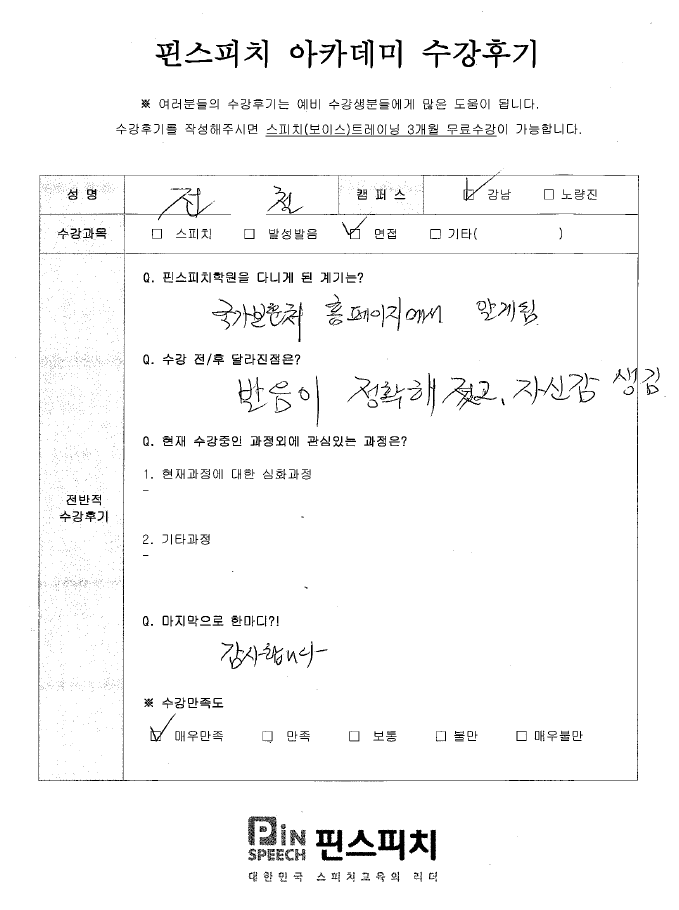 핀스피치 아카데미 수강후기
※ 여러분들의 수강후기는 예비 수강생분들에게 많은 도움이 됩니다.
수강후기를 작성해주시면 스피치(보이스)트레이닝 3개월 무료수강이 가능합니다.
성 명 전 철 캠 퍼 스 ☑ 강남 □ 노량진
수강과목 □ 스피치 □ 발성발음 ☑ 면접 □ 기타( )
Q. 핀스피치학원을 다니게 된 계기는?
국가보훈처 홈페이지에서 알게됨
Q. 수강 전/후 달라진점은?
발음이 정확해 졌고, 자신감 생김
Q. 현재 수강중인 과정외에 관심있는 과정은?
1. 현재과정에 대한 심화과정
-
전반적
수강후기
2. 기타과정
-
Q. 마지막으로 한마디?!
감사합니다
※ 수강만족도
☑ 매우만족 □ 만족 □ 보통 □ 불만 □ 매우불만
PiN
SPEECH 핀스피치
대한민국 스피치교육의 리더